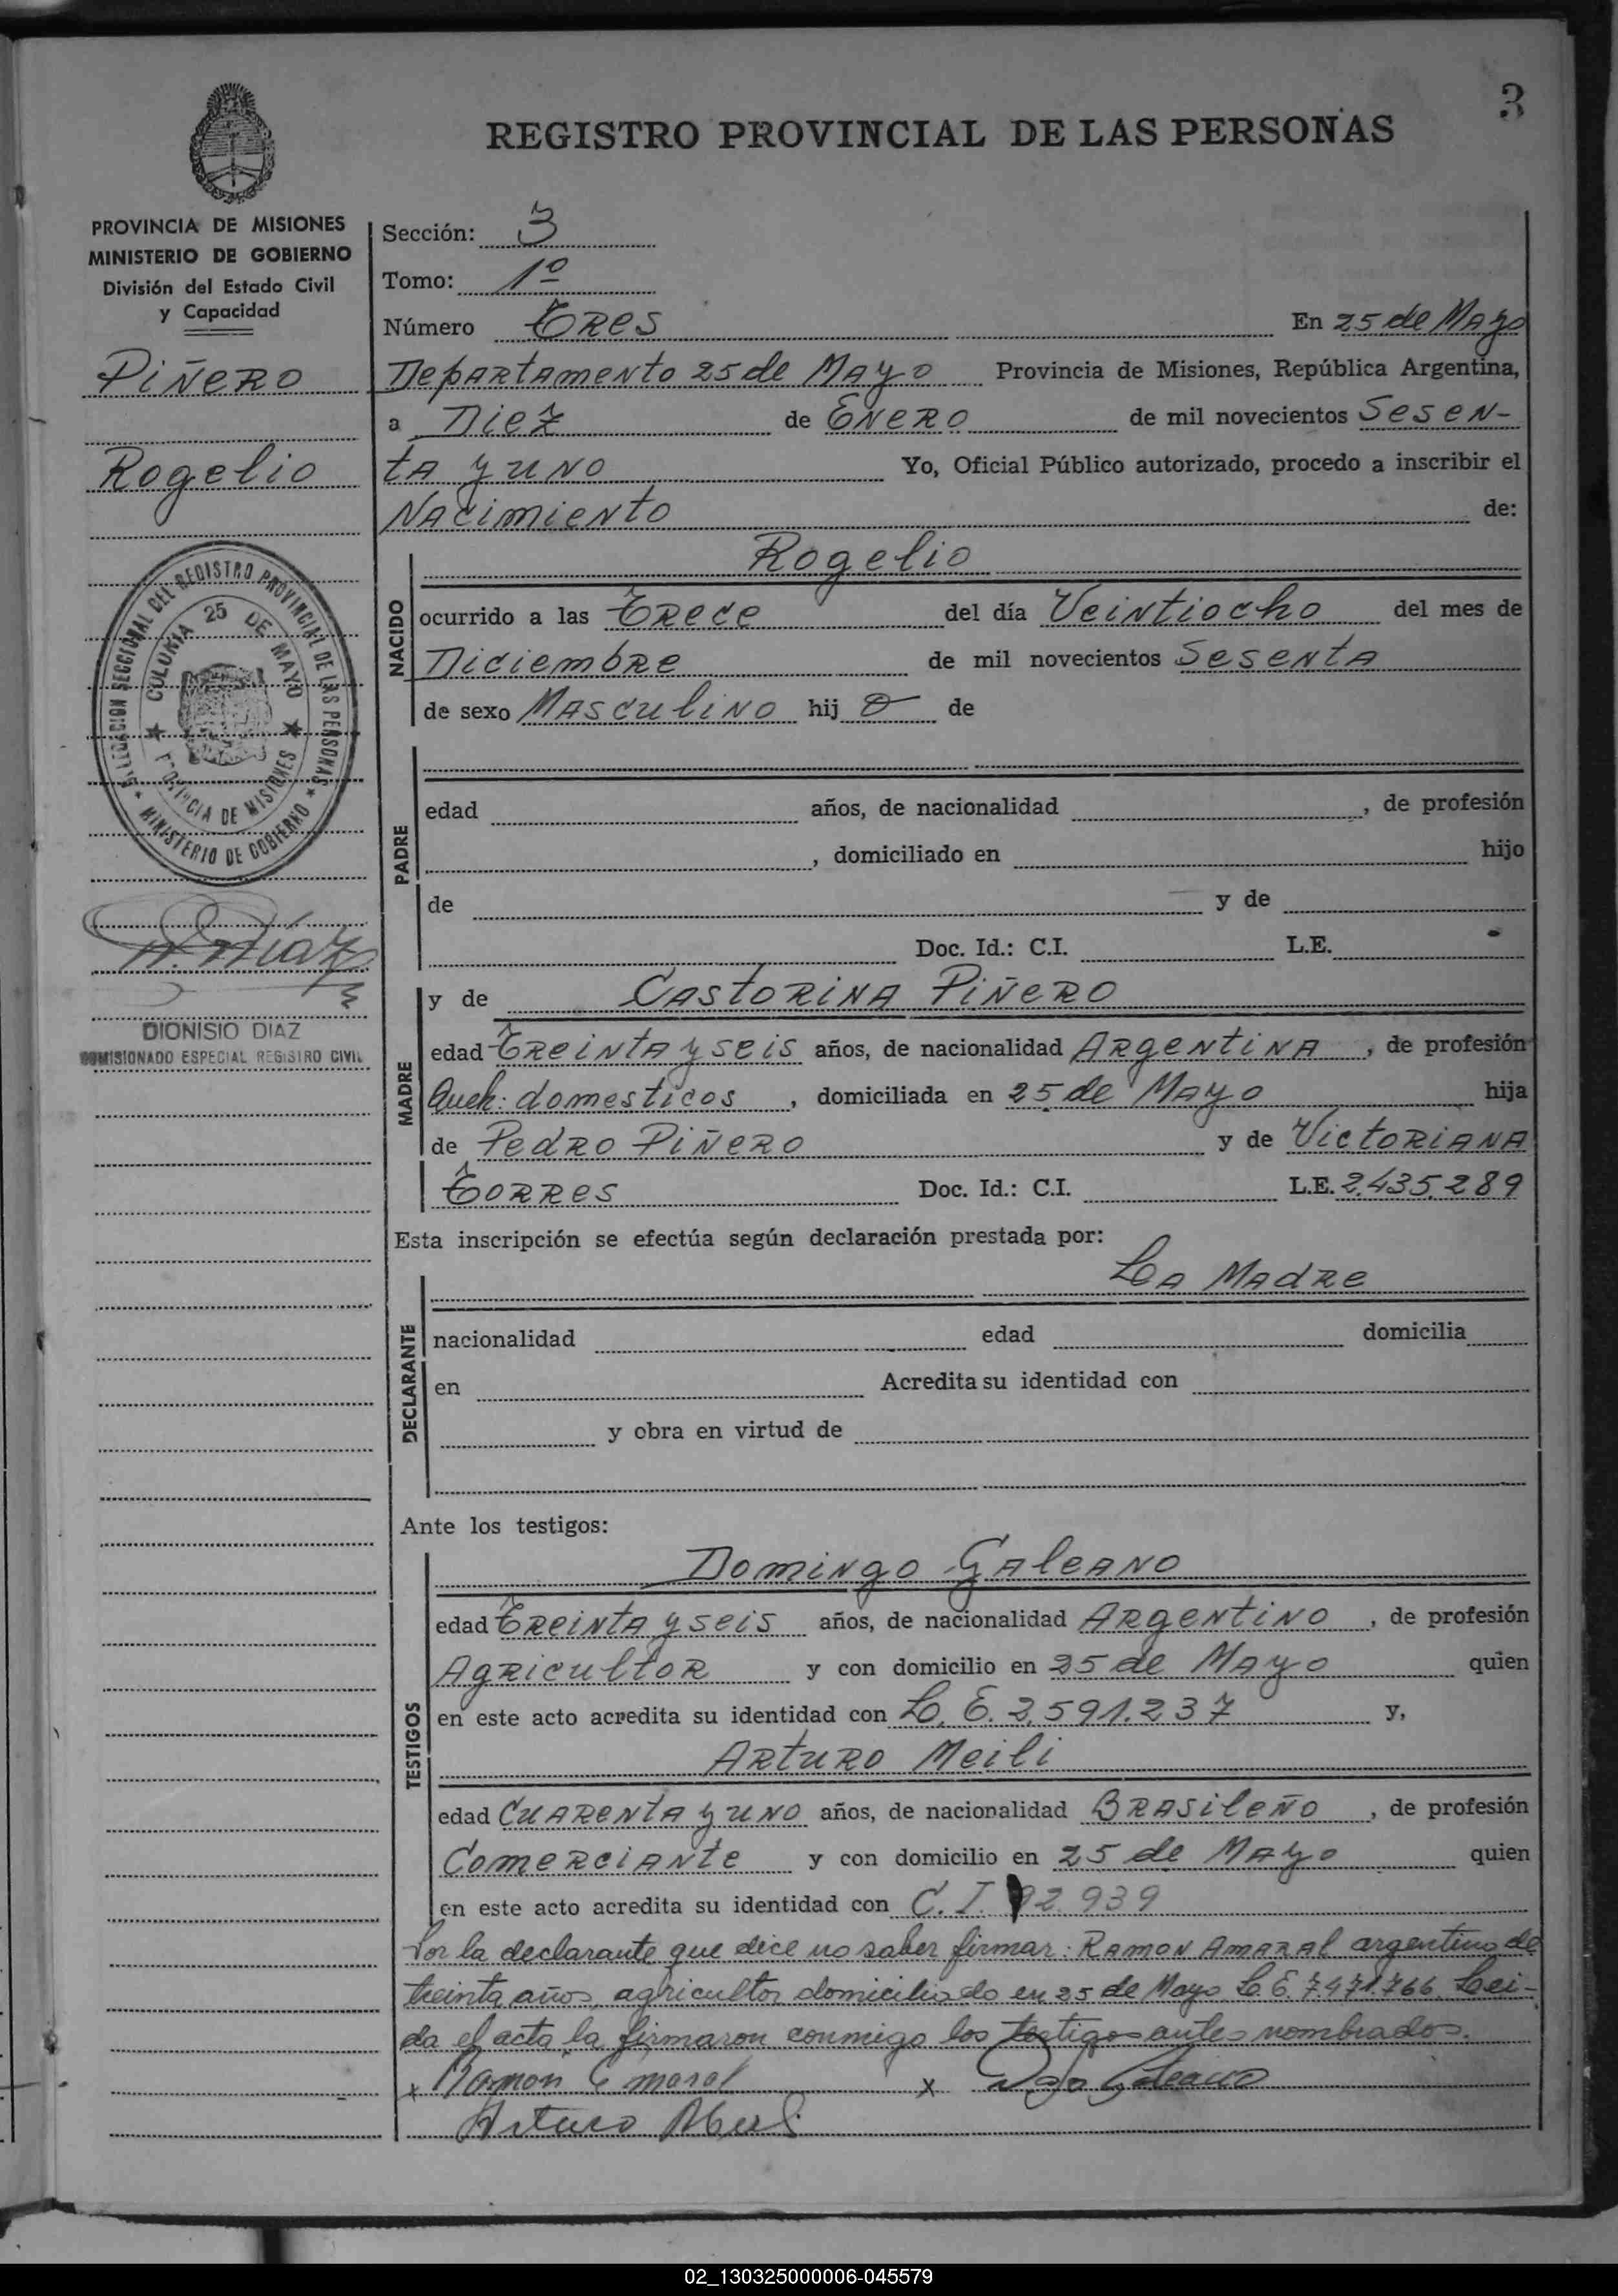 3
REGISTRO PROVINCIAL DE LAS PERSONAS
PROVINCIA DE MISIONES
MINISTERIO DE GOBIERNO
División del Estado Civil
y Capacidad
Piñero
Rogelio
DELEGACION SECCIONAL DEL REGISTRO PROVINCIAL DE LAS PERSONAS
MINISTERIO DE GOBIERNO
COLONIA 25 DE MAYO
PROVINCIA DE MISIONES
D. Díaz
DIONISIO DIAZ
COMISIONADO ESPECIAL REGISTRO CIVIL
Sección: 3
Tomo: 1º
Número Tres En 25 de Mayo
Departamento 25 de Mayo Provincia de Misiones, República Argentina,
a Diez de Enero de mil novecientos Sesen-
ta y uno Yo, Oficial Público autorizado, procedo a inscribir el
Nacimiento de:
NACIDO
Rogelio
ocurrido a las Trece del día Veintiocho del mes de
Diciembre de mil novecientos Sesenta
de sexo Masculino hij o de
PADRE
edad años, de nacionalidad , de profesión
, domiciliado en hijo
de y de
Doc. Id.: C.I. L.E.
MADRE
y de Castorina Piñero
edad Treinta y seis años, de nacionalidad Argentina , de profesión
Queh: domesticos , domiciliada en 25 de Mayo hija
de Pedro Piñero y de Victoriana
Torres Doc. Id.: C.I. L.E. 2.435.289
Esta inscripción se efectúa según declaración prestada por:
DECLARANTE
La Madre
nacionalidad edad domicilia
en Acredita su identidad con
y obra en virtud de
Ante los testigos:
TESTIGOS
Domingo Galeano
edad Treinta y seis años, de nacionalidad Argentino , de profesión
Agricultor y con domicilio en 25 de Mayo quien
en este acto acredita su identidad con L. E. 2.591.237 y,
Arturo Meili
edad Cuarenta y uno años, de nacionalidad Brasileño , de profesión
Comerciante y con domicilio en 25 de Mayo quien
en este acto acredita su identidad con C. I. 92.939
Por la declarante que dice no saber firmar: Ramon Amaral argentino de
treinta años, agricultor domiciliado en 25 de Mayo L. E. 7.471.766. Leí-
da el acta la firmaron conmigo los testigos antes nombrados.
x Ramon Amaral x Galeano
Arturo Meili
02_130325000006-045579